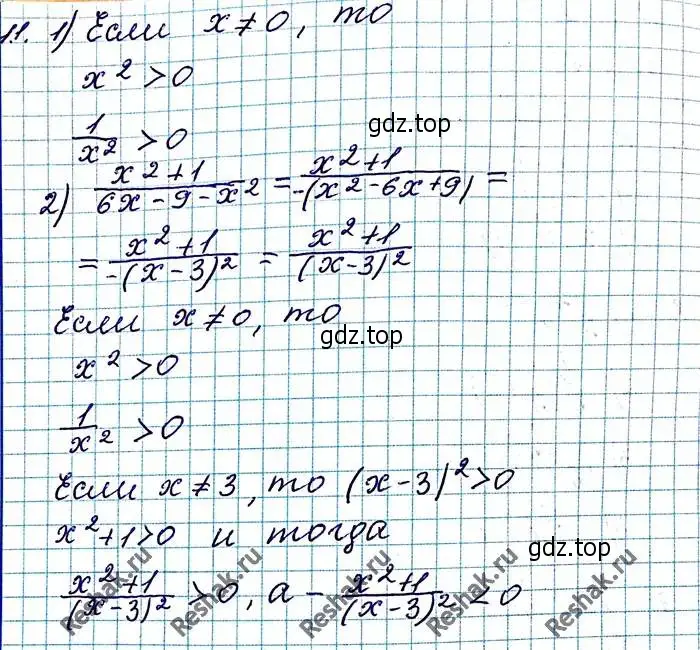 11. 1) Если x ≠ 0, то
x² > 0
1/x² > 0
gdz.top
2) (x²+1)/(6x-9-x²) = (x²+1)/(-(x²-6x+9)) =
= (x²+1)/(-(x-3)²) = (x²+1)/(x-3)²
Если x ≠ 0, то
gdz.top
x² > 0
1/x² > 0
Если x ≠ 3, то (x-3)² > 0
x²+1>0 и тогда
gdz.top
(x²+1)/(x-3)² > 0, а - (x²+1)/(x-3)² < 0
Reshak.ru Reshak.ru Reshak.ru Reshak.ru Reshak.ru